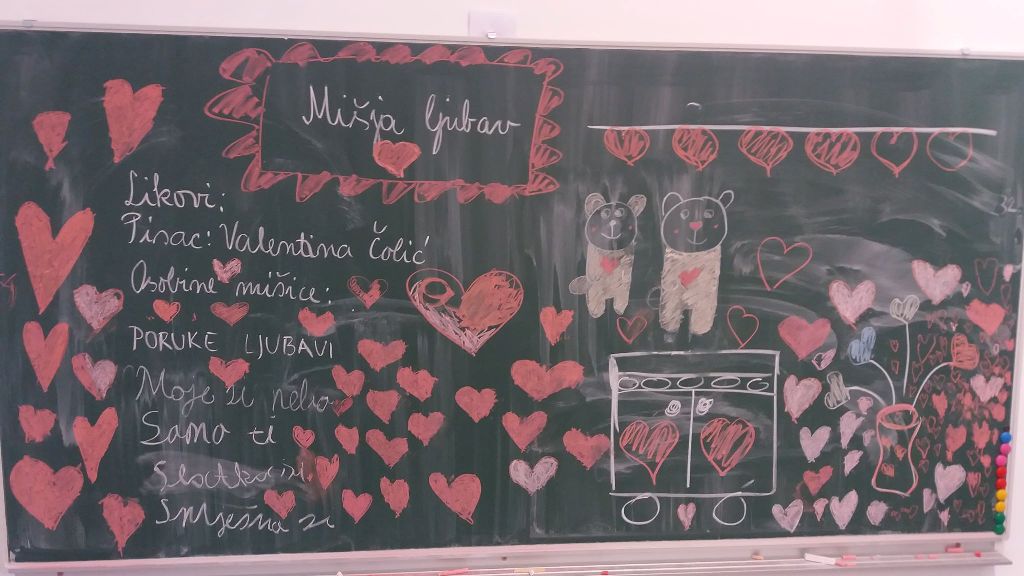 Mišja ljubav
Likovi:
Pisac: Valentina Čolić
Osobine mišice:
PORUKE LJUBAVI
Moje si nebo
Samo ti
Slatka si
Smješna si